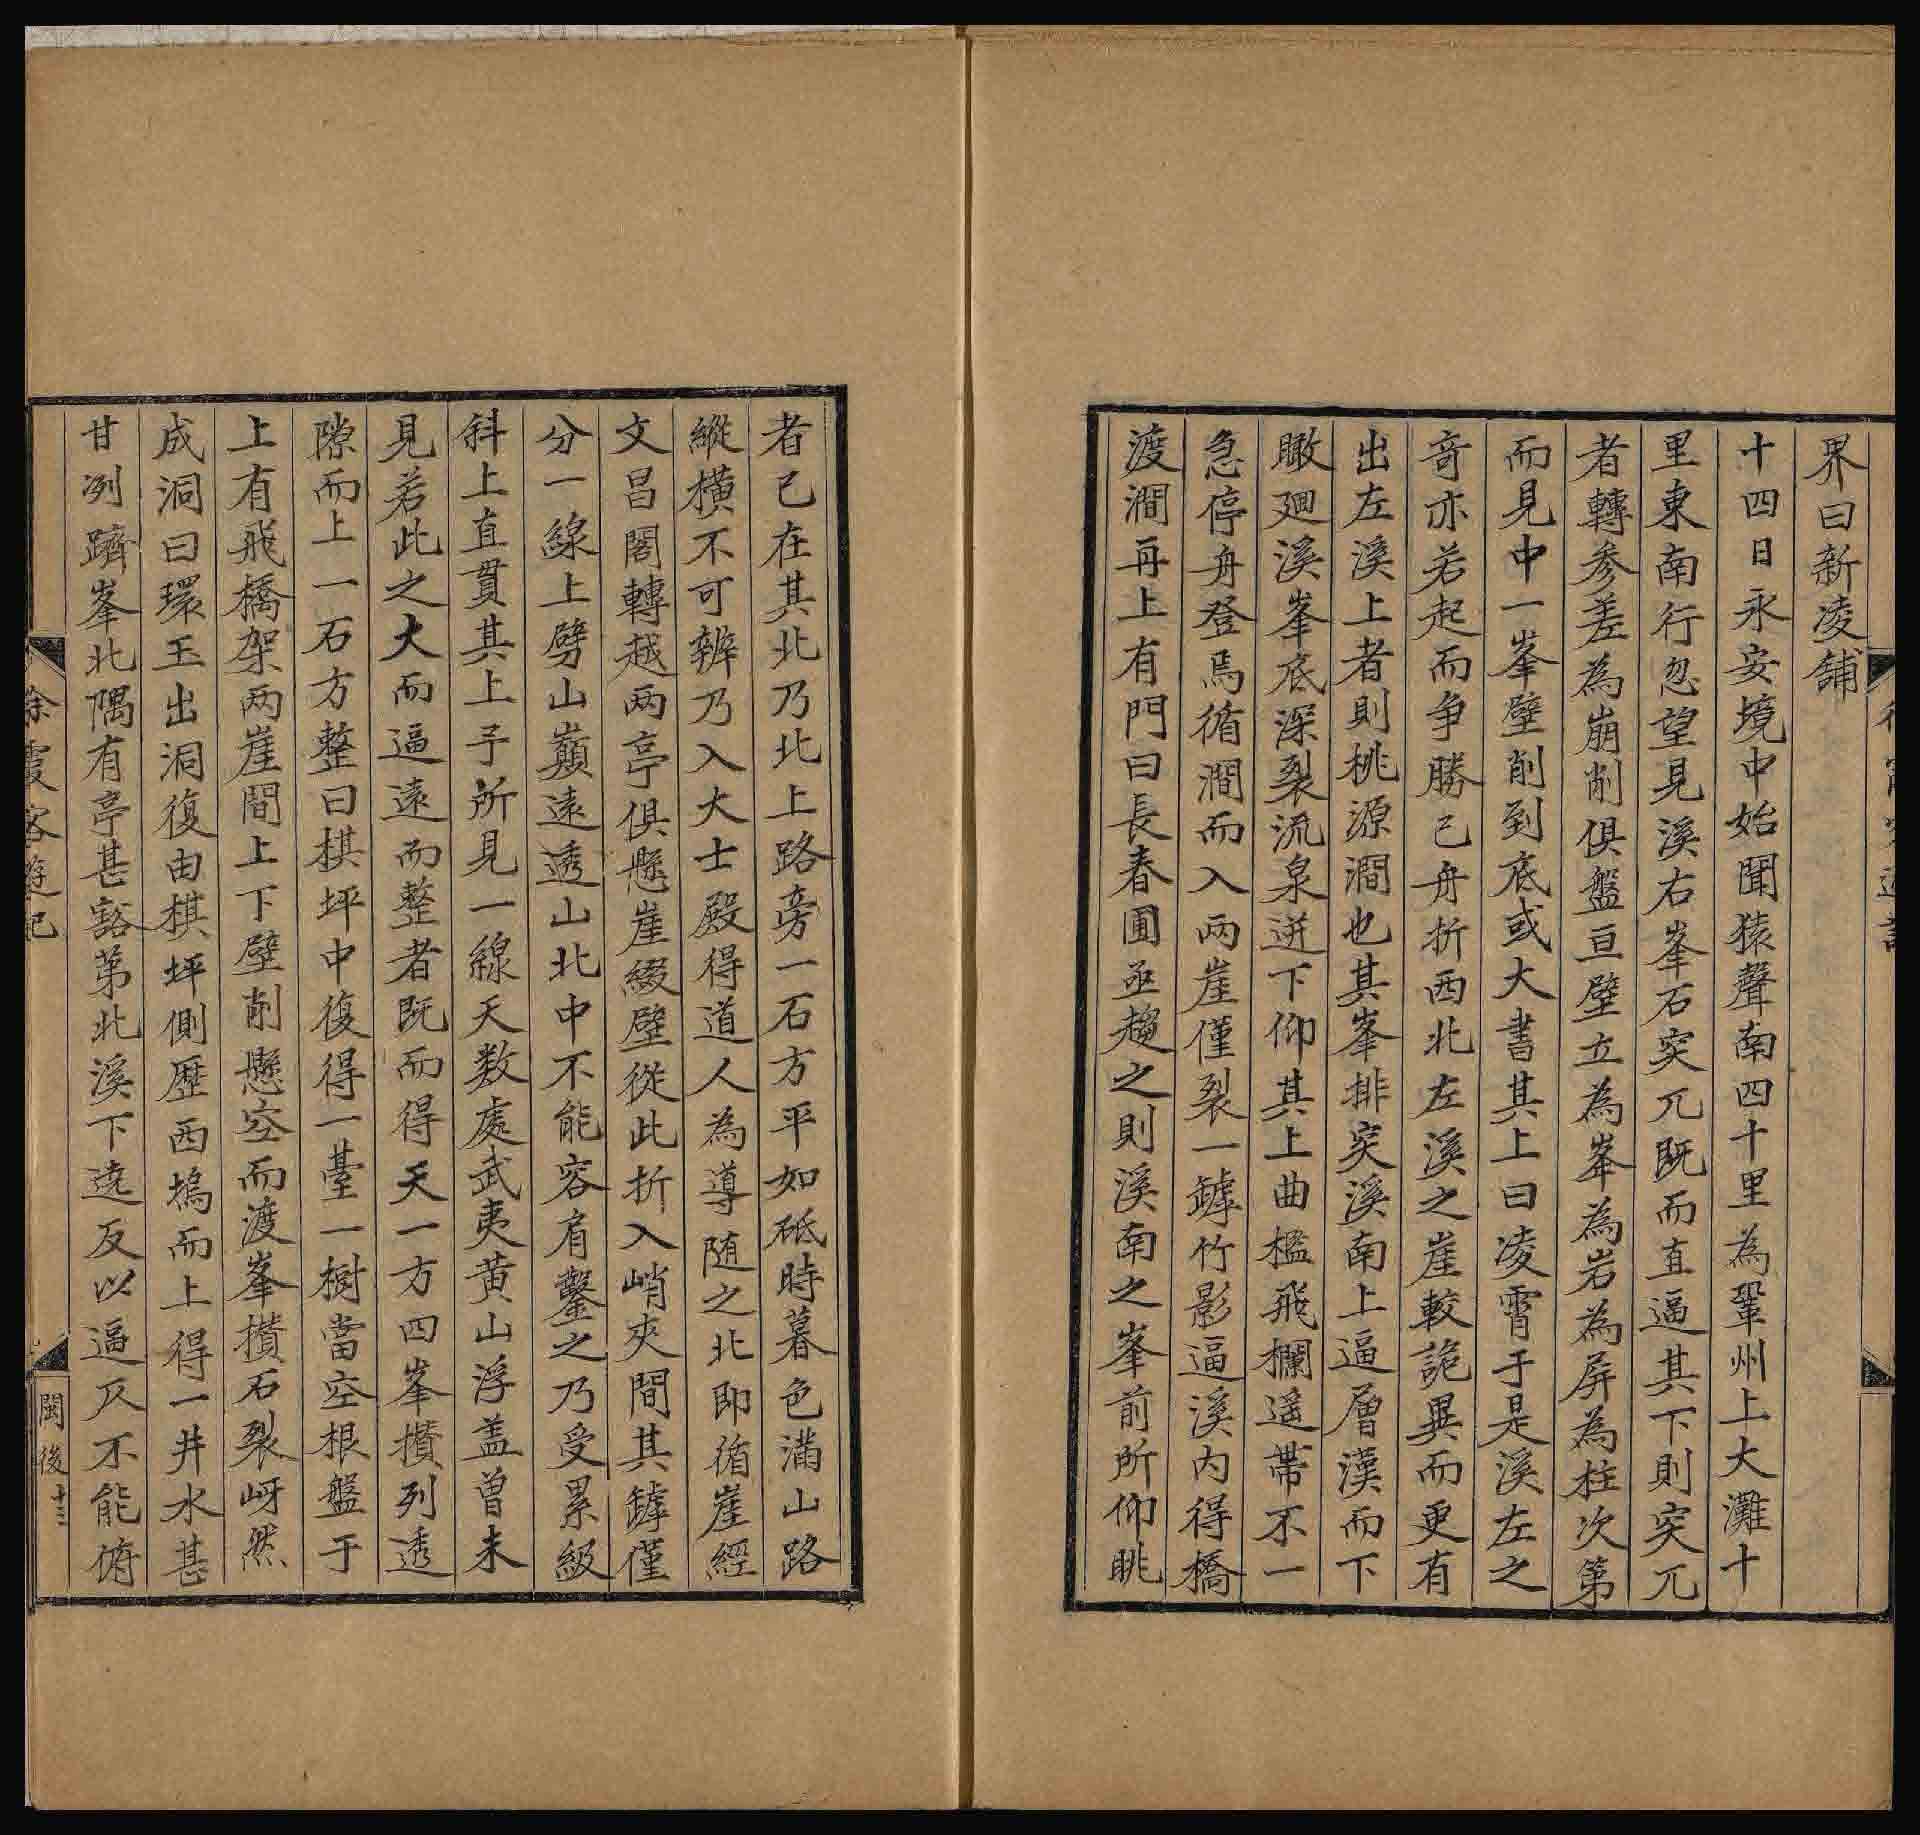 界曰新凌舖
十四日永安境中始聞猿聲南四十里為鞏州上大灘十
里東南行忽望見溪右峯石突兀既而直逼其下則突兀
者轉參差為崩削俱盤亘壁立為峯為岩為屏為柱次第
而見中一峯壁削到底或大書其上曰凌霄于是溪左之
奇亦若起而争勝已舟折西北左溪之崖較詭異而更有
出左溪上者則桃源澗也其峯排突溪南上逼層漢而下
瞰廻溪峯底深裂流泉迸下仰其上曲檻飛欄遥帶不一
急停舟登焉循澗而入兩崖僅裂一罅竹影逼溪内得橋
渡澗再上有門曰長春圃亟趨之則溪南之峯前所仰眺
者已在其北乃北上路旁一石方平如砥時暮色滿山路
縱横不可辨乃入大士殿得道人為導随之北即循崖經
文昌閣轉越兩亭俱懸崖綴壁從此折入峭夾間其罅僅
分一線上劈山巔遠透山北中不能容肩鑿之乃受累級
斜上直貫其上予所見一線天数處武夷黄山浮盖曾未
見若此之大而逼遠而整者既而得天一方四峯攅列透
隙而上一石方整曰棋坪中復得一臺一樹當空根盤于
上有飛橋架兩崖間上下壁削懸空而渡峯攅石裂岈然
成洞曰環玉出洞復由棋坪側歷西塢而上得一井水甚
甘冽躋峯北隅有亭甚豁第北溪下遶反以逼仄不能俯
徐霞客遊記
閩後
十三